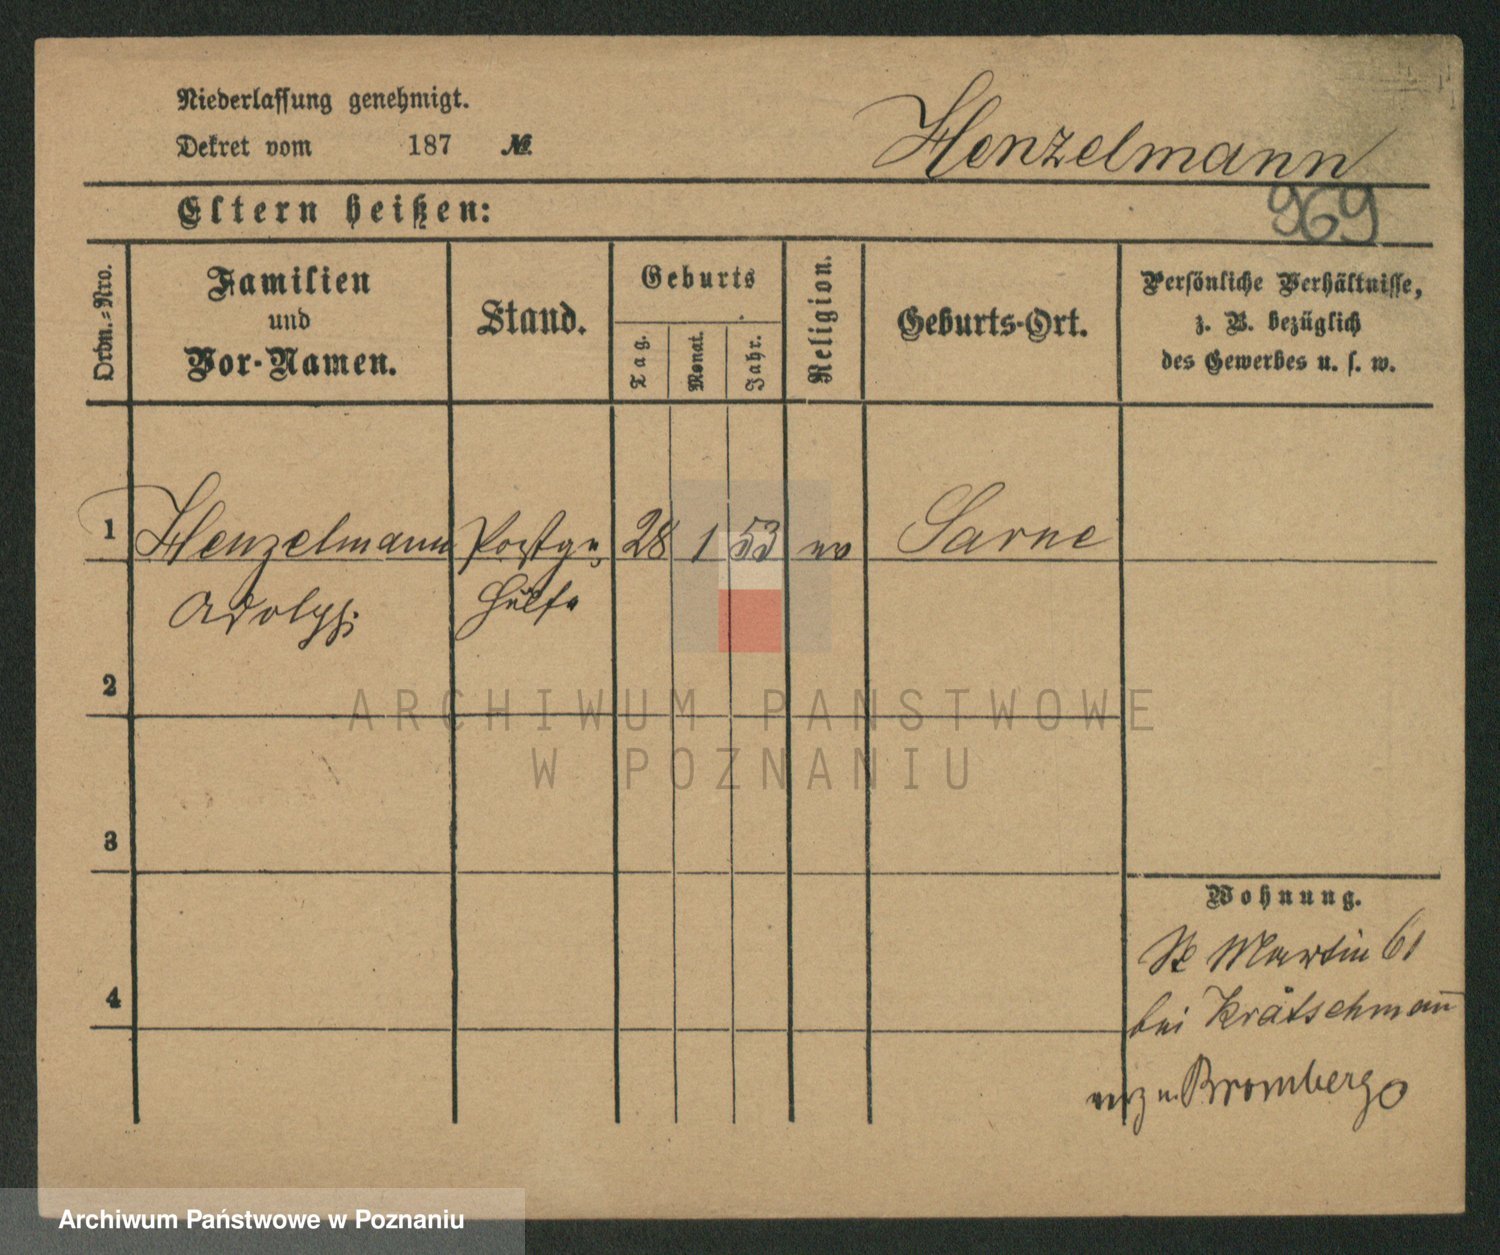 Niederlassung genehmigt.
Dekret vom 187 №
Henzelmann
Eltern heißen:
969
Ordn.-Nro.
Familien
und
Vor-Namen.
Stand.
Geburts
Tag.
Monat.
Jahr.
Religion.
Geburts-Ort.
Persönliche Verhältnisse,
z. B. bezüglich
des Gewerbes u. s. w.
1 Henzelmann Postge- 28 1 53 ev Sarne
Adolph hülfe
2
ARCHIWUM PAŃSTWOWE
W POZNANIU
3
Wohnung.
St Martin 61
4
bei Krätschmañ
verz n. Bromberg
Archiwum Państwowe w Poznaniu